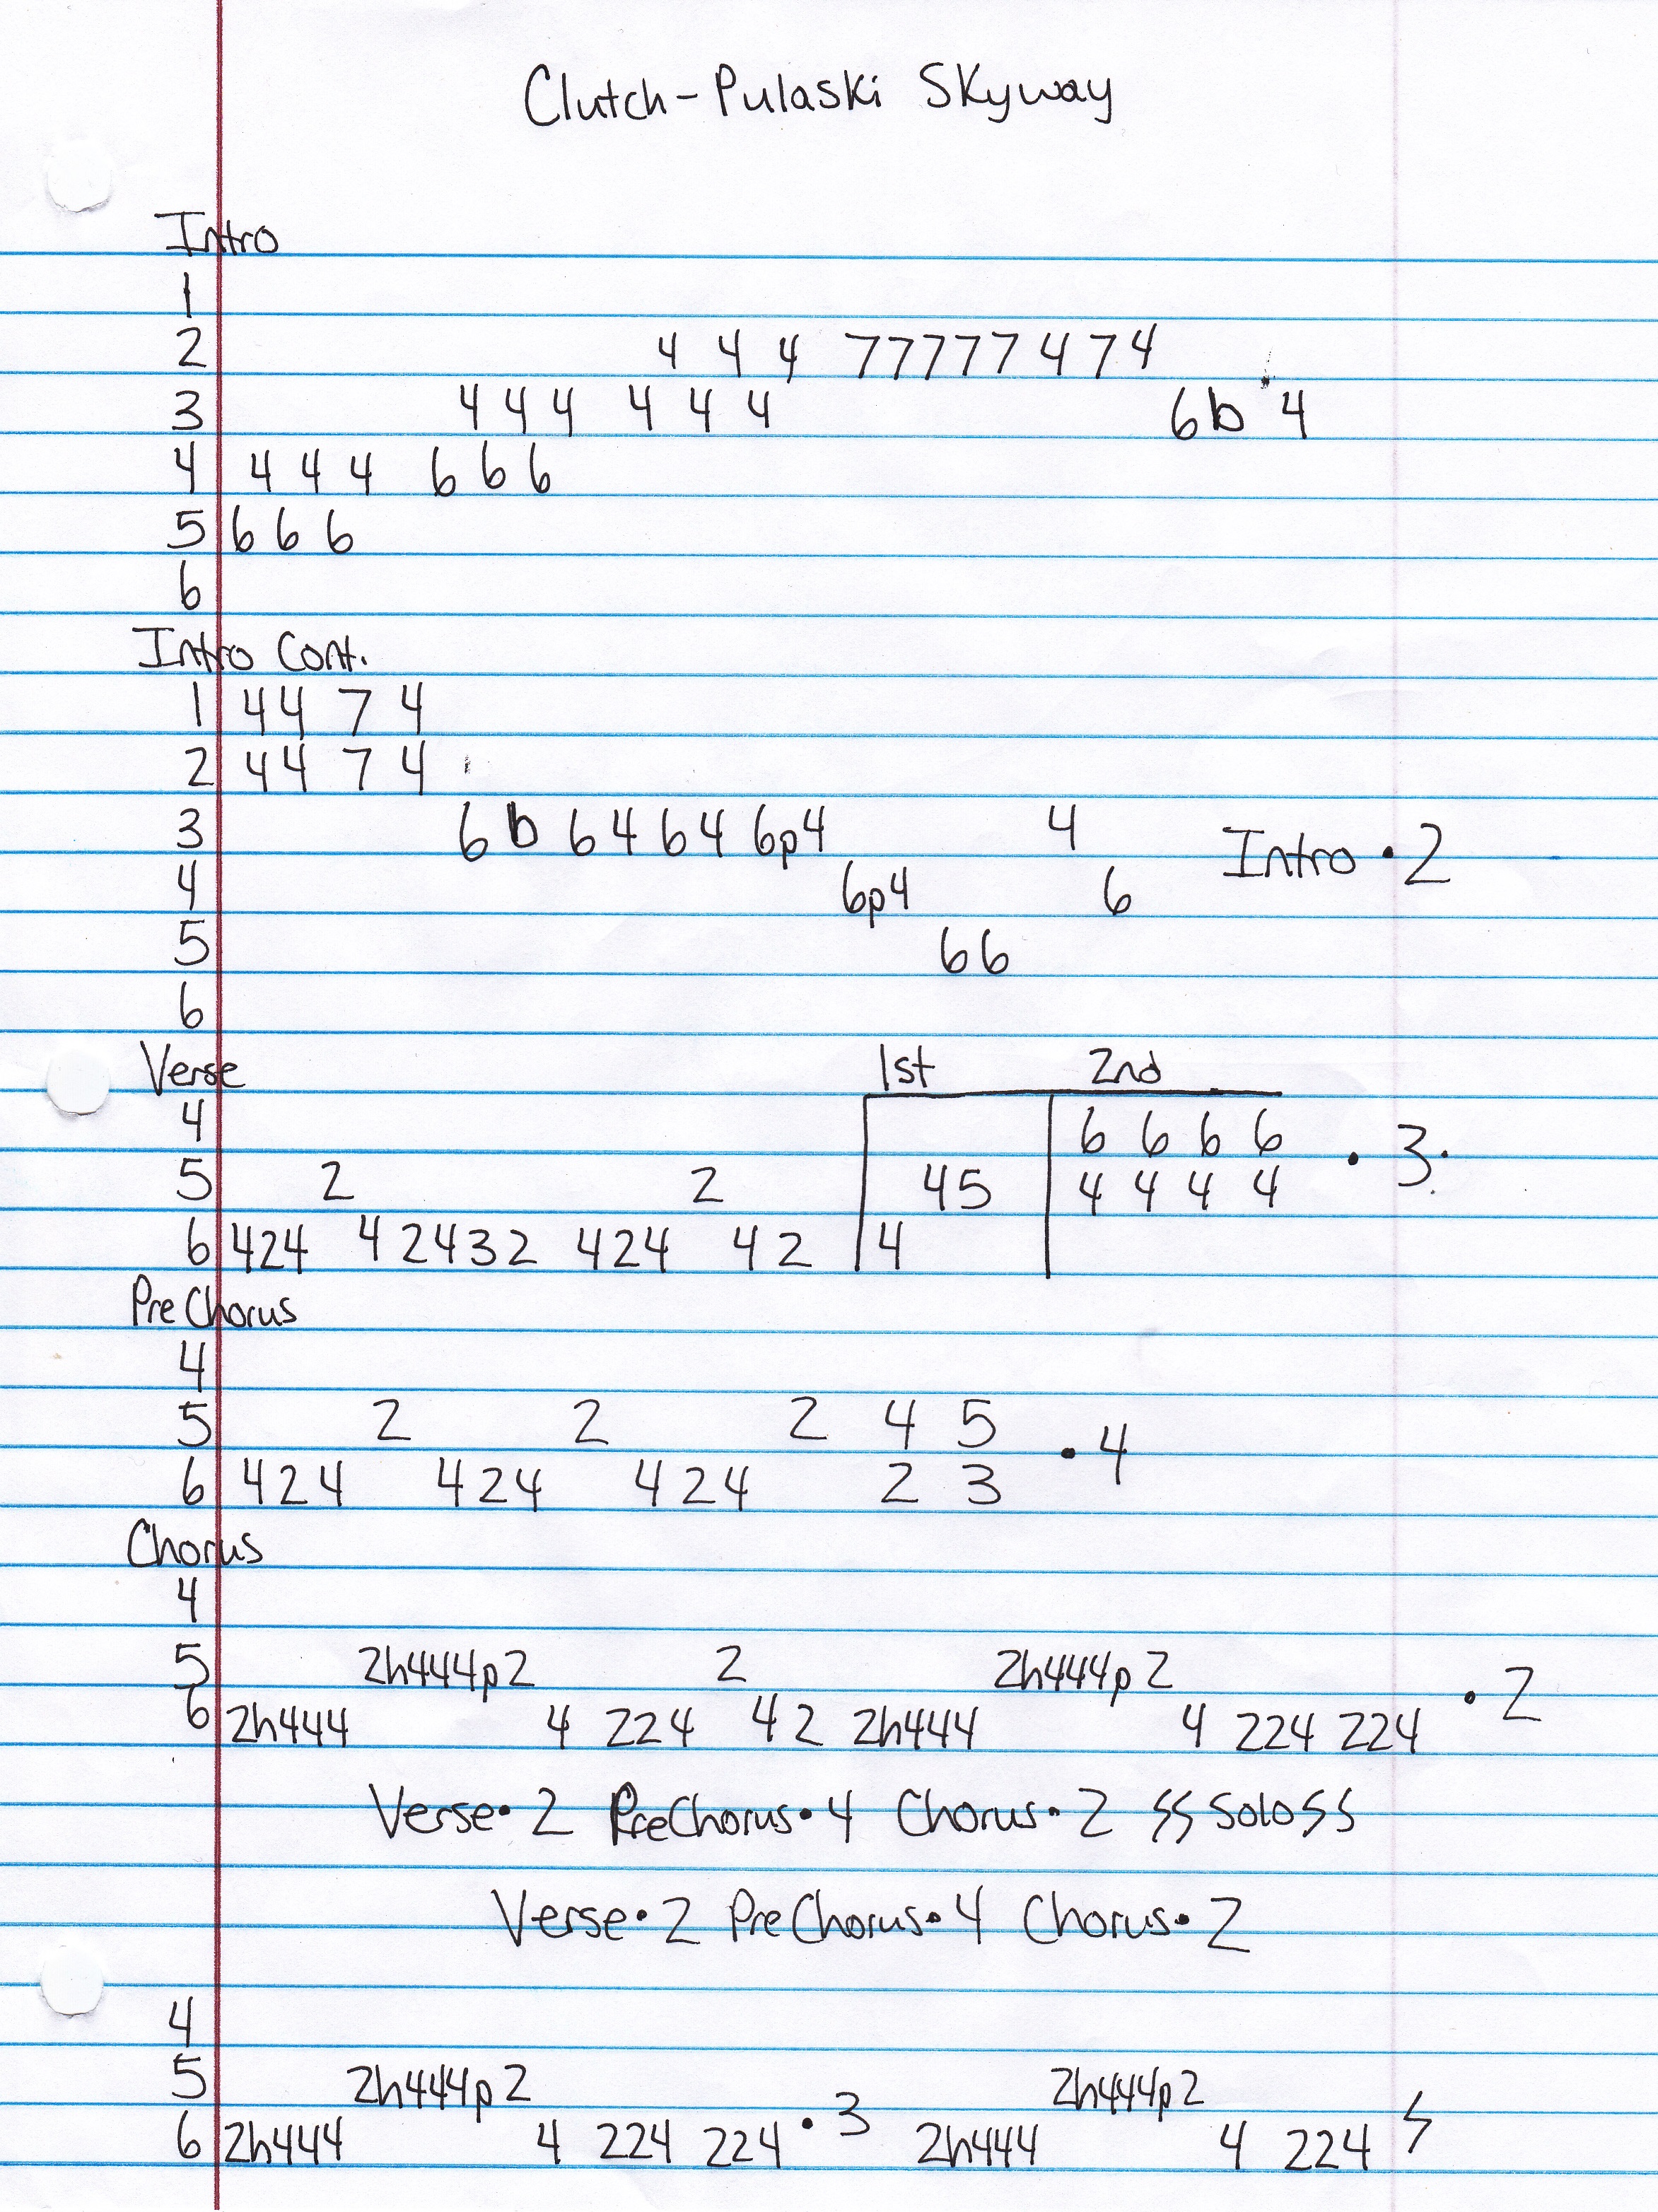 Clutch - Pulaski Skyway
Intro
1
2 4 4 4 7 7 7 7 7 4 7 4
3 4 4 4 4 4 4 6 b 4
4 4 4 4 6 6 6
5 6 6 6
6
Intro Cont.
1 4 4 7 4
2 4 4 7 4
3 6 b 6 4 6 4 6p4 4 Intro • 2
4 6p4 6
5 6 6
6
Verse 1st 2nd
4 6 6 6 6 • 3.
5 2 2 4 5 4 4 4 4
6 4 2 4 4 2 4 3 2 4 2 4 4 2 4
PreChorus
4
5 2 2 2 4 5 • 4
6 4 2 4 4 2 4 4 2 4 2 3
Chorus
4
5 2h444p2 2 2h444p2 • 2
6 2h444 4 224 4 2 2h444 4 224 224
Verse • 2 PreChorus • 4 Chorus • 2 ϟϟ Solo ϟϟ
Verse • 2 PreChorus • 4 Chorus • 2
4
5 2h444p2 2h444p2
6 2h444 4 224 224 • 3 2h444 4 224 ϟ